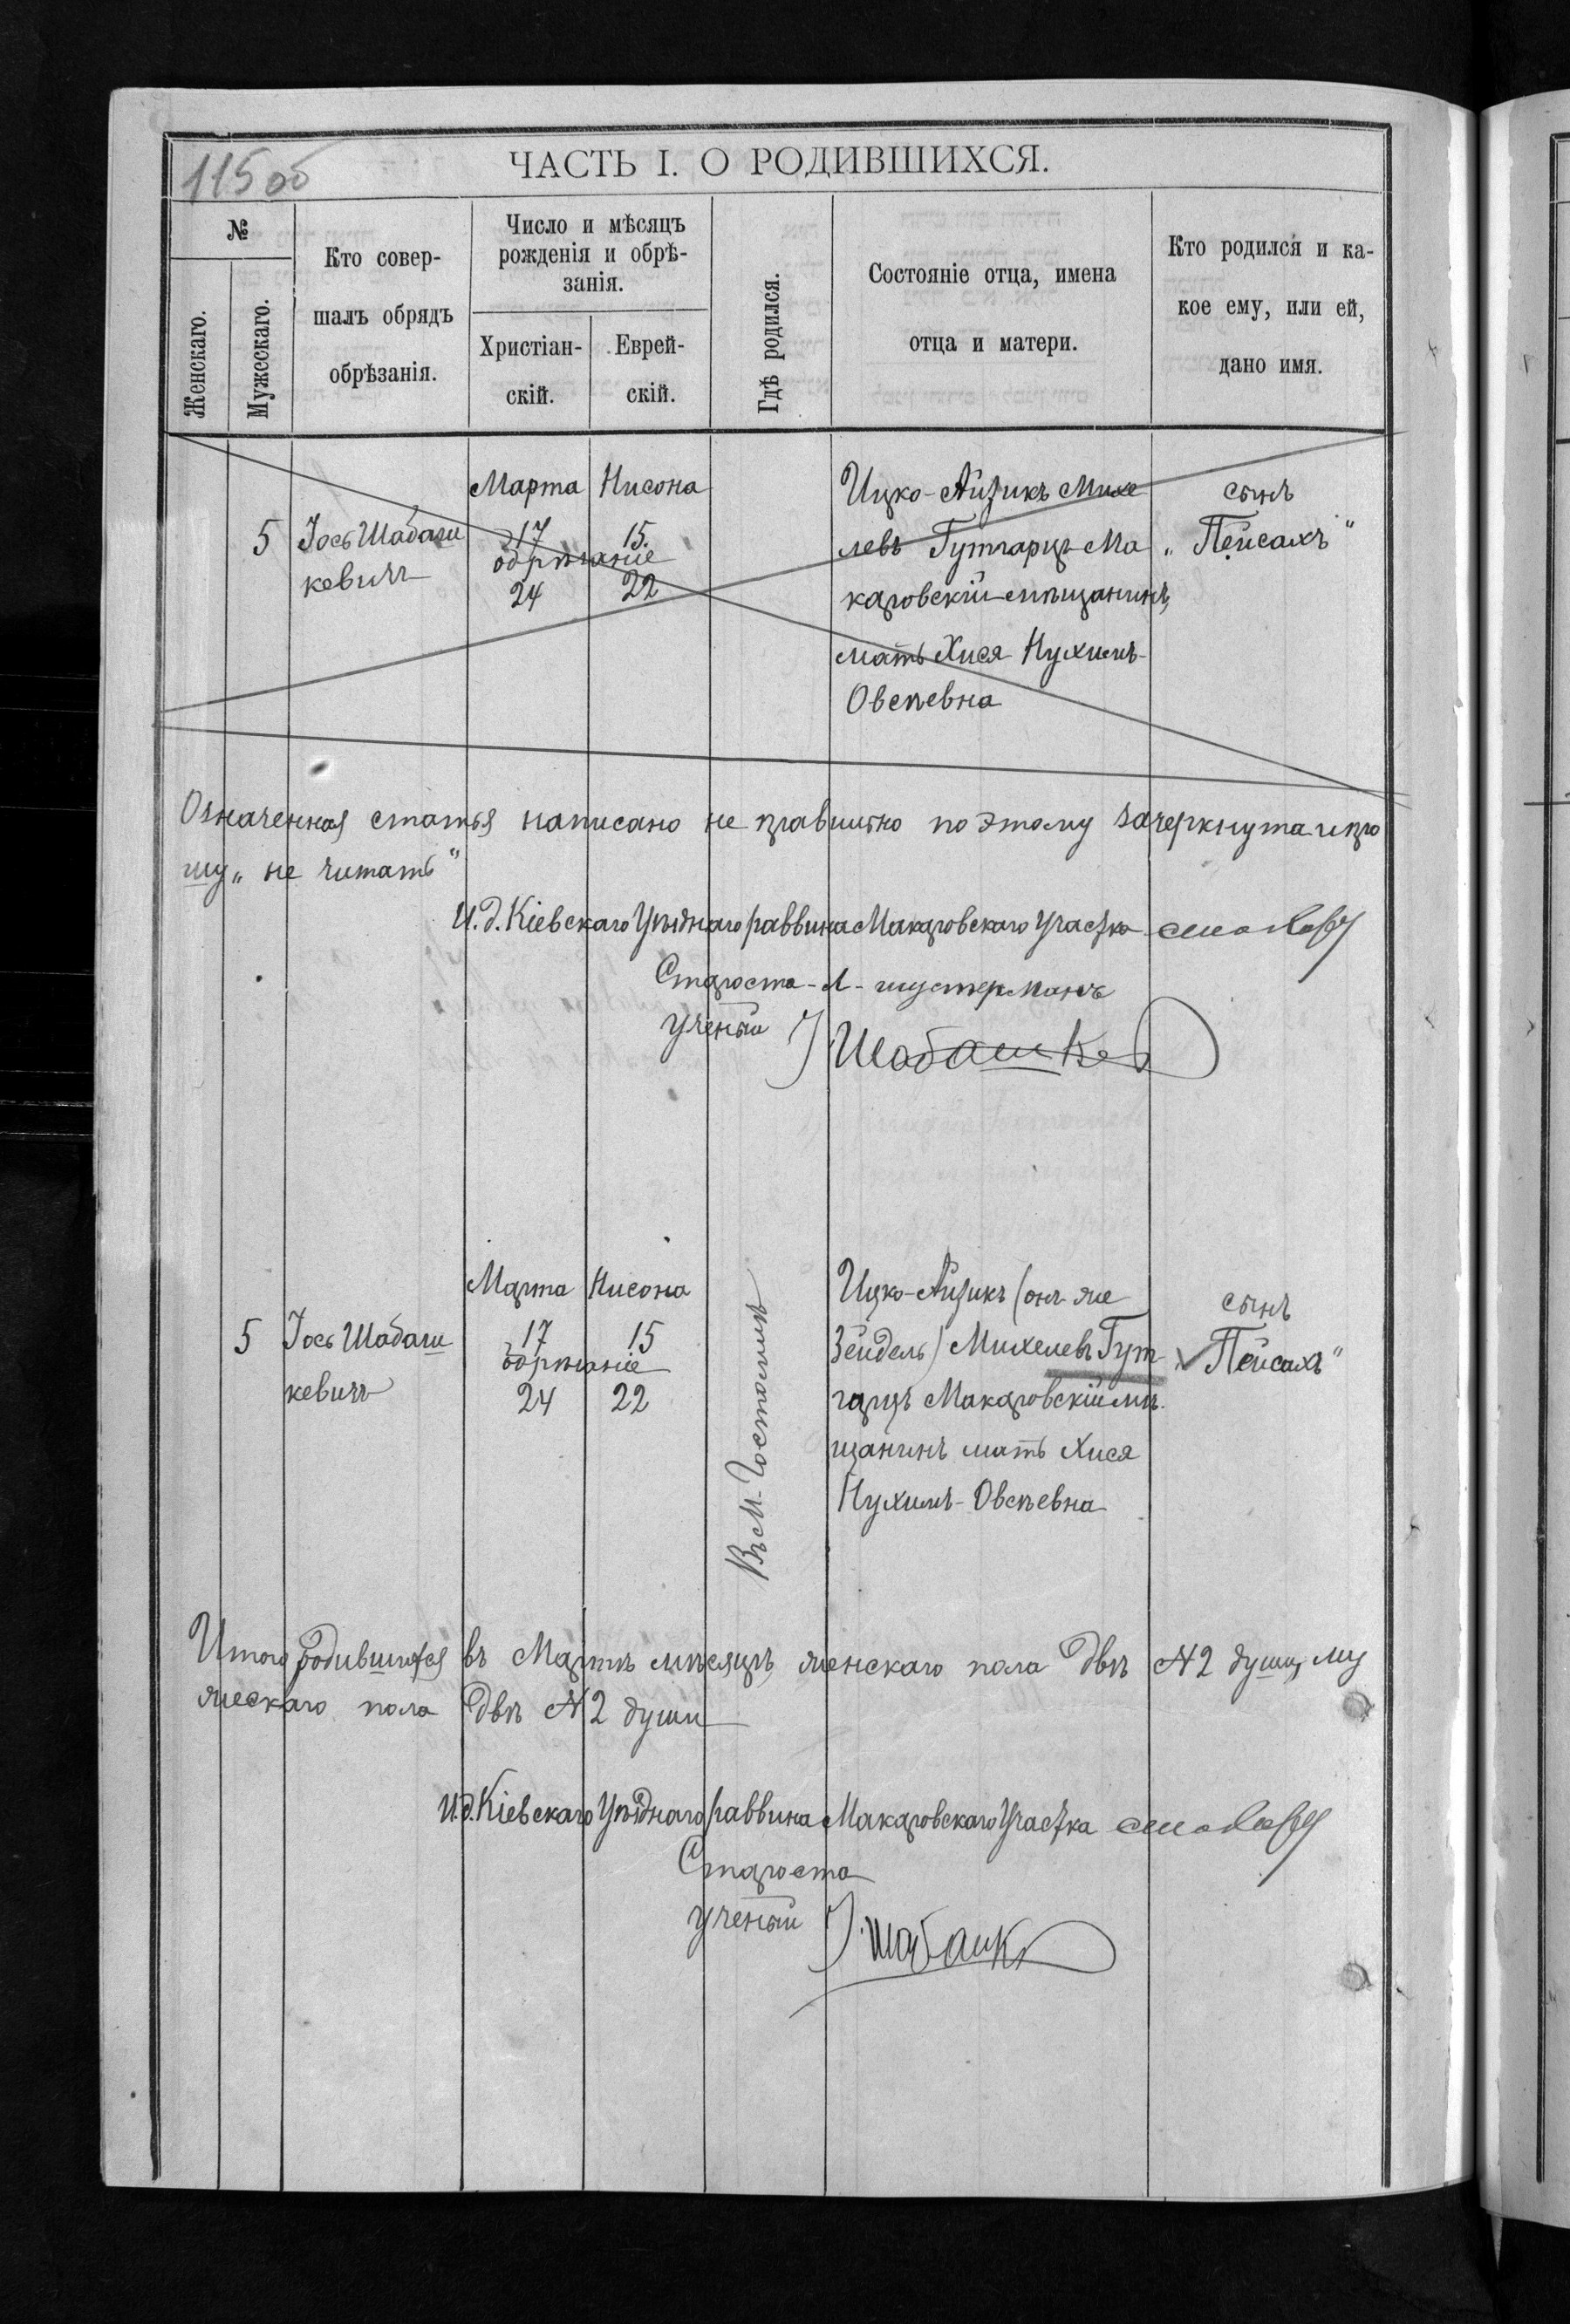 115 об
ЧАСТЬ I. О РОДИВШИХСЯ.
№
Женскаго.
Мужескаго.
Кто совер-
шалъ обрядъ
обрѣзанія.
Число и мѣсяцъ
рожденія и обрѣ-
занія.
Христіан-
скій.
Еврей-
скій.
Гдѣ родился.
Состояніе отца, имена
отца и матери.
Кто родился и ка-
кое ему, или ей,
дано имя.
Марта Нисона
5 Іось Шабаш
кевичъ
17 15.
обрѣзаніе
24 22
Ицко-Айзикъ Михе
левъ Гутгарцъ Ма
каровскій мѣщанинъ,
мать Хися Нухимъ-
Овсѣевна
сынъ
„Пейсахъ"
Означенная статья написано не правильно по этому зачеркнута и про
шу „не читать"
И. д. Кіевскаго Уѣзднаго раввина Макаровскаго Участка
Староста - Л - шустерманъ
Ученый І Шабашкев
Марта Нисона
5 Іось Шабаш
кевичъ
17 15
обрѣзаніе
24 22
Въ м. Гостомлѣ
Ицко-Айзикъ (онъ же
Зейдель) Михелевъ Гут
гарцъ Макаровскій мѣ
щанинъ мать Хися
Нухимъ-Овсѣевна
сынъ
„Пейсахъ"
Итого родившихся въ Мартѣ мѣсяцѣ женскаго пола двѣ № 2 души, му
жескаго пола двѣ № 2 души
И. д. Кіевскаго Уѣзднаго раввина Макаровскаго Участка
Староста
Ученый І. Шабашк